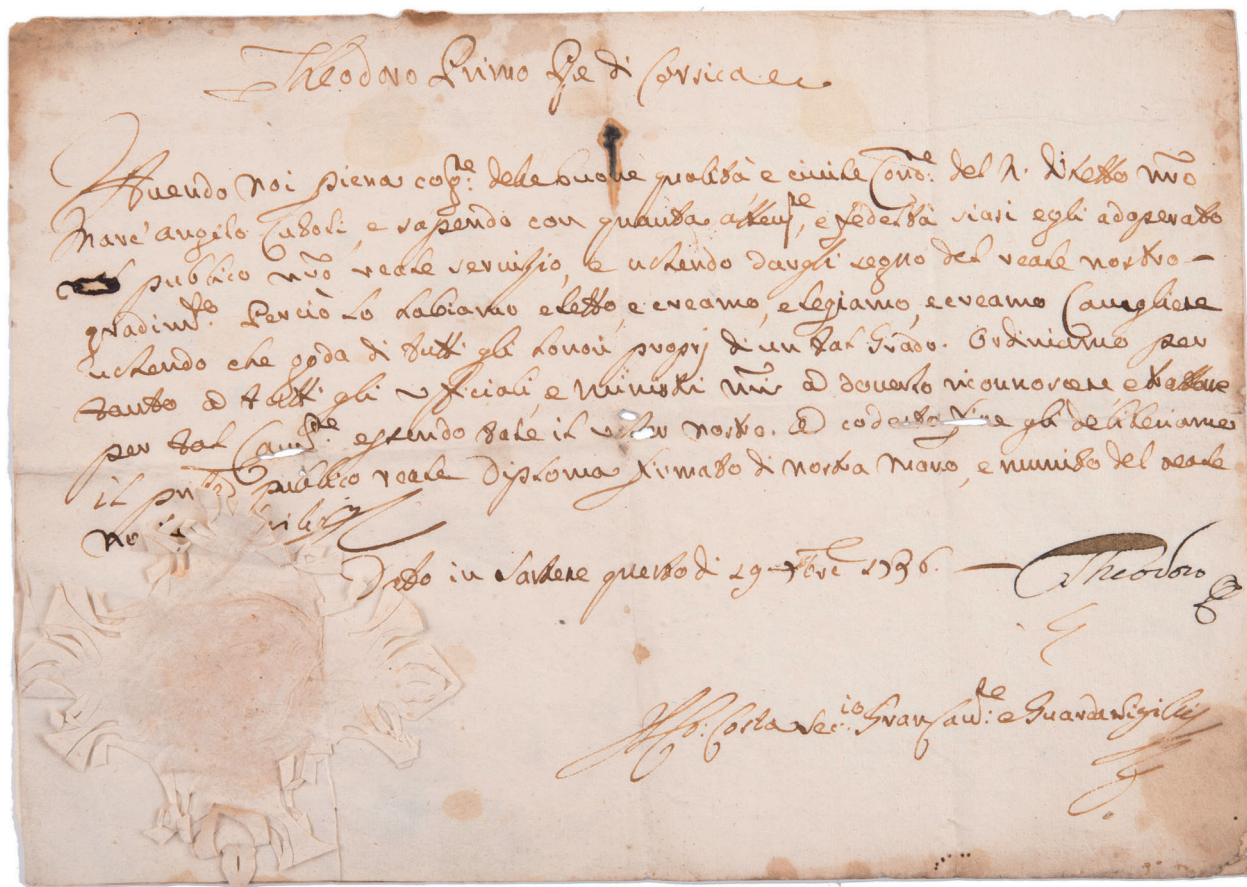 Theodoro Primo Re di Corsica ec
Avendo Noi piena cog.ne delle buone qualità e civile Cond.ne del N. diletto nrõ
Marc' Angelo e sapendo con quanta atten.ne, e fedeltà siasi egli adoperato
publico nrõ reale servizio, e volendo dargli segno del reale nostro
gradim.to. Perciò lo habiamo eletto, e creamo, elegiamo, e creamo Cavagliere
volendo che goda di tutti gli honori proprj di un tal Grado. Ordiniamo per
tanto a tutti gli Ufficiali, e Ministri nrĩ a doverlo riconnoscere, e trattare
per tal essendo tale il voler nostro. A codesto fine gli deliberiamo
il publico reale Diploma firmato di nostra Mano, e munito del reale
Dato in Sartene questo di 29 1736. Theodoro
Costa Sec.io Gran Can.re e Guarda Sigilli